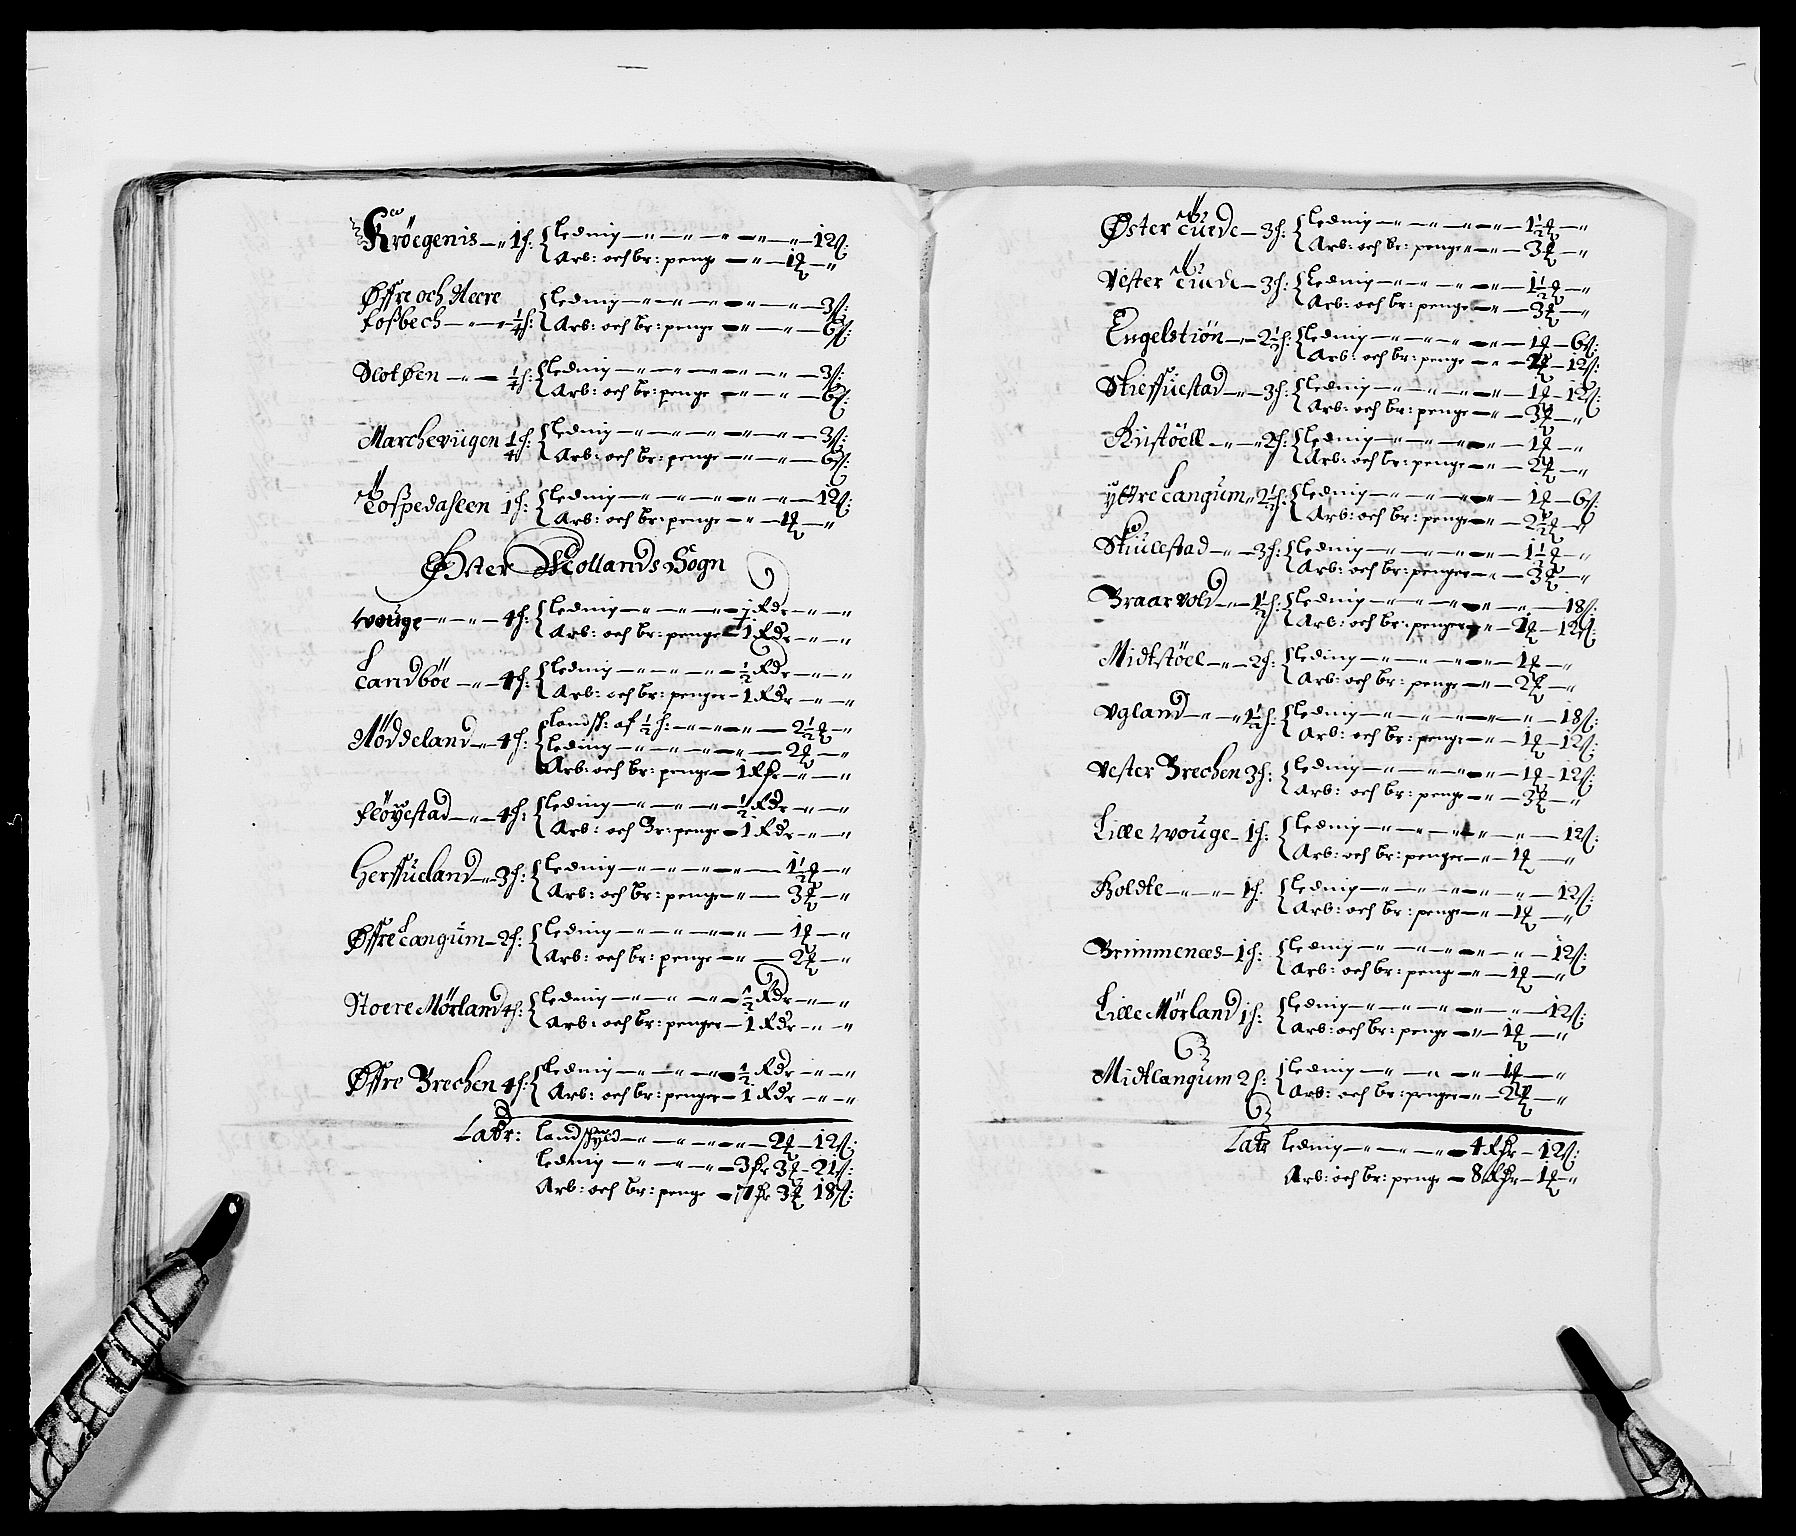 Kröegenis — 1 h: Leding — 12 ß:
Arb: och br: penge — 1 ort —
Øffre och Neere
Fosbech — ¼ h: Leding — 3 ß:
Arb: och br: penge — 6 ß:
Slotøen — ¼ h: Leding — 3 ß:
Arb: och br: penge — 6 ß:
Marchevügen ¼ h: Leding — 3 ß:
Arb: och br: penge — 6 ß:
Tofpedaleen 1 h: Leding — 12 ß:
Arb: och br: penge — 1 ort —
Øster Mollands Sogn
Wouge — 4 h: Leding — ½ Rdr —
Arb: och br: penge — 1 Rdr —
Landböe — 4 h: Leding — ½ Rdr —
Arb: och br: penger — 1 Rdr —
Nöddeland — 4 h: Landsk: af ½ h: — 2½ ort —
Leding — 2 ort —
Arb: och br: penge — 1 Rdr —
Flöyestad — 4 h: Leding — ½ Rdr —
Arb: och Br: penge — 1 Rdr —
Herffueland — 3 h: Leding — 1½ ort —
Arb: och br: penge — 3 ort —
Øffre Langum — 2 h: Leding — 1 ort —
Arb: och br: penge — 2 ort —
Stoere Mörland 4 h: Leding — ½ Rdr —
Arb: och br: penger — 1 Rdr —
Øffre Brechen 4 h: Leding — ½ Rdr —
Arb: och br: penger — 1 Rdr —
Latr: Landskyld — 2 ort — 12 ß:
Leding — 3 Rdr 3 ort — 21 ß:
Arb: och br: penge — 7 Rdr 3 ort 18 ß:
Øster — 3 h: Leding — 1½ ort —
Arb: och br: penge — 3 ort —
Vester — 3 h: Leding — 1½ ort —
Arb: och br: penge — 3 ort —
Engelstiön — 2½ h: Leding — 1 ort — 6 ß:
Arb: och br: penge — 2 ort — 12 ß:
Skieffuestad — 3 h: Leding — 1 ort — 12 ß:
Arb: och br: penge — 3 ort —
Rüstöell — 2 h: Leding — 1 ort —
Arb: och br: penge — 2 ort —
Yttre Langum — 2½ h: Leding — 1 ort — 6 ß:
Arb: och br: penge — 2½ ort —
Skiullestad — 3 h: Leding — 1½ ort —
Arb: och br: penger — 3 ort —
Braarvold — 1½ h: Leding — 18 ß:
Arb: och br: penger — 1 ort — 12 ß:
Midtstöel — 2 h: Leding — 1 ort —
Arb: och br: penge — 2 ort —
Vgland — 1½ h: Leding — 18 ß:
Arb: och br: penge — 1 ort — 12 ß:
Vester Brechen 3 h: Leding — 1 ort — 12 ß:
Arb: och br: penge — 3 ort —
Lille Wouge — 1 h: Leding — 12 ß:
Arb: och br: penger — 1 ort —
Holdte — 1 h: Leding — 12 ß:
Arb: och br: penge — 1 ort —
Brimmenees — 1 h: Leding — 12 ß:
Arb: och br: penge — 1 ort —
Lille Mörland 1 h: Leding — 12 ß:
Arb: och br: penge — 1 ort —
Midtlangum 2 h: Leding — 1 ort —
Arb: och br: penger — 2 ort —
Latr Leding — 4 Rdr — 12 ß:
Arb: och br: penge — 8 Rdr — 1 ort —